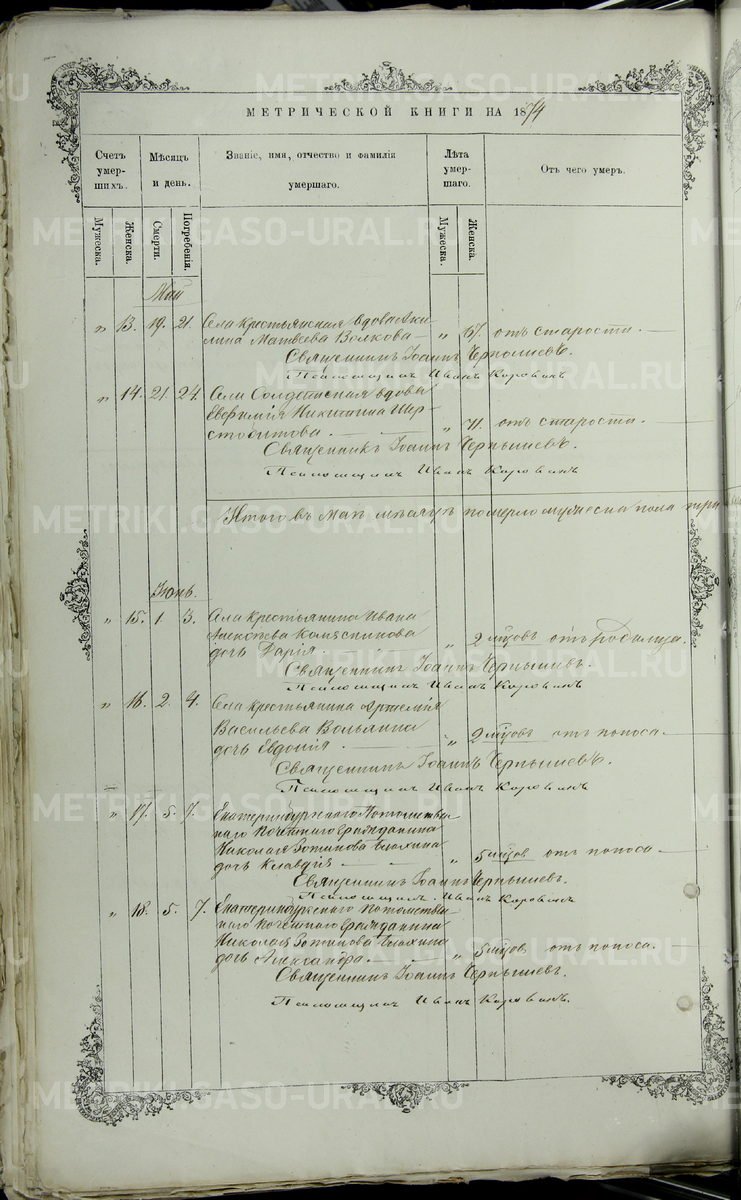 МЕТРИЧЕСКОЙ КНИГИ НА 1874
Счетъ умер-шихъ.
Мѣсяцъ и день.
Званіе, имя, отчество и фамилія умершаго.
Лѣта умер-шаго.
Отъ чего умеръ.
Мужеска.
Женска.
Смерти.
Погребенія.
Мужеска.
Женска.
Май
„ 13. 19. 21. Села крестьянская вдова Аки-
лина Матвѣева Волкова — „ 67 отъ старости. —
Священникъ Іоаннъ Чернышевъ.
Псаломщикъ Иванъ Коровинъ
„ 14. 21. 24. Села Солдатская вдова
Евфимія Никитина
— „ 71. отъ старости. —
Священникъ Іоаннъ Чернышевъ.
Псаломщикъ Иванъ Коровинъ
Итого въ маѣ мѣсяцѣ померло мужеска пола три
Іюнь.
„ 15. 1 3. Села крестьянина Ивана
Алексѣева Колясникова
дочь Дарія. „ 2 мѣсцовъ отъ родимца.
Священникъ Іоаннъ Чернышевъ.
Псаломщикъ Иванъ Коровинъ
„ 16. 2. 4. Села крестьянина Артемія
Васильева
дочь Евдокія — „ 2 мѣсцовъ отъ поноса. —
Священникъ Іоаннъ Чернышевъ.
Псаломщикъ Иванъ Коровинъ
„ 17. 5. 7. Екатеринбургскаго Потомствен-
наго Почетнаго Гражданина
Николая
дочь Клавдія — „ 5 мѣсцовъ отъ поноса —
Священникъ Іоаннъ Чернышевъ.
Псаломщикъ Иванъ Коровинъ
„ 18. 5. 7. Екатеринбургскаго Потомствен-
наго Почетнаго Гражданина
Николая
дочь Александра. — „ 5 мѣсцовъ отъ поноса. —
Священникъ Іоаннъ Чернышевъ.
Псаломщикъ Иванъ Коровинъ.
METRIKI.GASO-URAL.RU